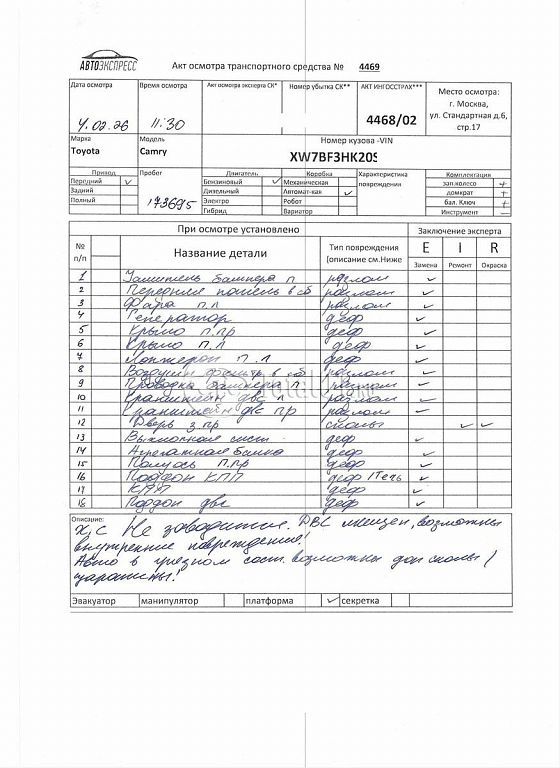 АВТОЭКСПРЕСС
Акт осмотра транспортного средства № 4469
Дата осмотра Время осмотра Акт осмотра эксперта СК* Номер убытка СК** АКТ ИНГОССТРАХ*** Место осмотра:
4.02.26 11:30 4468/02 г. Москва,
ул. Стандартная д.6,
стр.17
Марка Модель Номер кузова -VIN
Toyota Camry XW7BF3HK20S
Привод Пробег Двигатель Коробка Характеристика повреждений Комплектация
Передний ✓ Бензиновый ✓ Механическая зап.колесо +
Задний Дизельный Автомат-кая ✓ домкрат +
Полный 173695 Электро Робот бал. Ключ +
Гибрид Вариатор Инструмент –
При осмотре установлено Заключение эксперта
№ п/п Название детали Тип повреждения (описание см.Ниже E I R
Замена Ремонт Окраска
1 Усилитель бампера п разлом ✓
2 Передняя панель в сб разлом ✓
3 Фара п.л разлом ✓
4 Генератор деф ✓
5 Крыло п.пр деф ✓
6 Крыло п.л деф ✓
7 Лонжерон п.л деф ✓
8 Воздушн фильтр в сб разлом ✓
9 Проводка бампера п разлом ✓
10 Кранштейн двс л разлом ✓
11 Кранштейн двс пр разлом ✓
12 Дверь з.пр сколы ✓ ✓
13 Выхлопная сист деф ✓
14 Агрегатная балка деф ✓
15 Полуось п.пр деф ✓
16 Поддон КПП деф /Течь ✓
17 КПП деф ✓
18 Поддон двс деф ✓
Описание:
х,с Не заводится. ДВС смещен, возможны
внутренние повреждения!
Авто в грязном сост. возможны доп сколы /
царапины!
Эвакуатор манипулятор платформа ✓ секретка